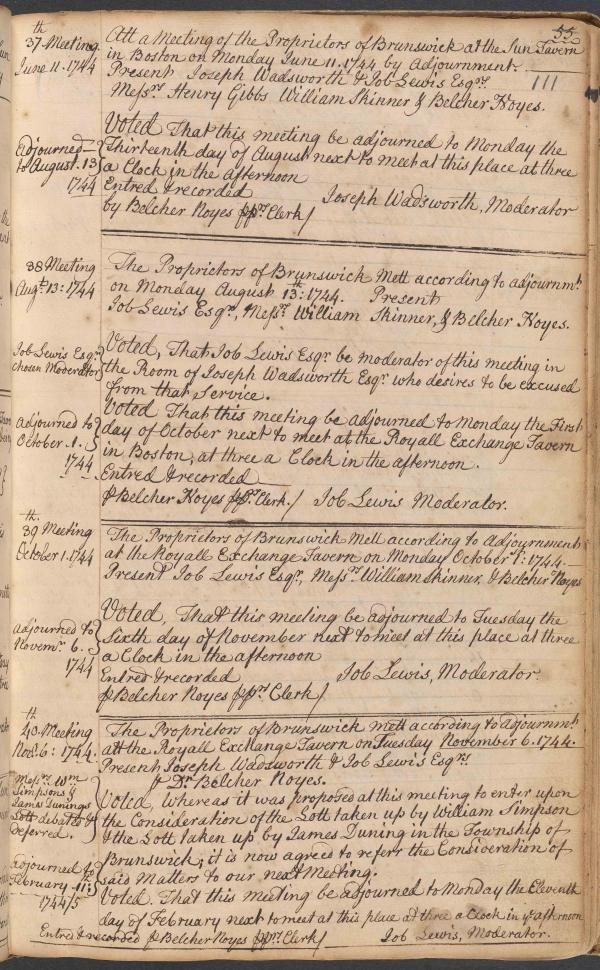 55
111
37th Meeting
June 11. 1744
Att a Meeting of the Proprietors of Brunswick at the Sun Tavern
in Boston on Monday June 11. 1744 by Adjournment.
Present Joseph Wadsworth & Job Lewis Esqrs.
Messrs Henry Gibbs William Skinner & Belcher Noyes.
Adjourned
to August. 13
1744
Voted That this meeting be adjourned to Monday the
Thirteenth day of August next to meet at this place at three
a Clock in the afternoon
Entred & recorded
Joseph Wadsworth, Moderator
by Belcher Noyes pprs Clerk/
38 Meeting
Augt. 13: 1744
The Proprietors of Brunswick Mett according to adjournmt.
on Monday August 13th: 1744. Present
Job Lewis Esqr, Messrs William Skinner, & Belcher Noyes.
Job Lewis Esqr
chosen Moderator
Voted, That Job Lewis Esqr be moderator of this meeting in
the Room of Joseph Wadsworth Esqr who desires to be excused
from that Service.
adjourned to
October. 1.
1744
Voted That this meeting be adjourned to Monday the First
day of October next to meet at the Royall Exchange Tavern
in Boston, at three a Clock in the afternoon.
Entred & recorded
p Belcher Noyes pprs. Clerk./ Job Lewis Moderator.
39th Meeting
October 1. 1744
The Proprietors of Brunswick Mett according to Adjournment
at the Royall Exchange Tavern on Monday October 1st: 1744.
Present Job Lewis Esqr, Messrs William Skinner, & Belcher Noyes
adjourned to
Novemr. 6.
1744
Voted, That this meeting be adjourned to Tuesday the
Sixth day of November next to meet at this place at three
a Clock in the afternoon
Entred & recorded
Job Lewis, Moderator.
p Belcher Noyes pprs Clerk/
40th Meeting
Nov. 6: 1744.
The Proprietors of Brunswick mett according to Adjournmt
att the Royall Exchange Tavern on Tuesday November 6. 1744.
Present Joseph Wadsworth & Job Lewis Esqrs
& Dr Belcher Noyes.
Messrs Wm
Simpsons &
James Dunings
Lott debated &
deferred.
Voted, Whereas it was proposed at this meeting to enter upon
the Consideration of the Lott taken up by William Simpson
& the Lott taken up by James Duning in the Township of
Brunswick; it is now agreed to referr the Consideration of
said Matters to our next Meeting.
adjourned to
February 11th:
1744/5
Voted. That this meeting be adjourned to Monday the Eleventh
day of February next to meet at this place at three a Clock in ye afternoon
Entred & recorded p Belcher Noyes pprs Clerk/ Job Lewis, Moderator.